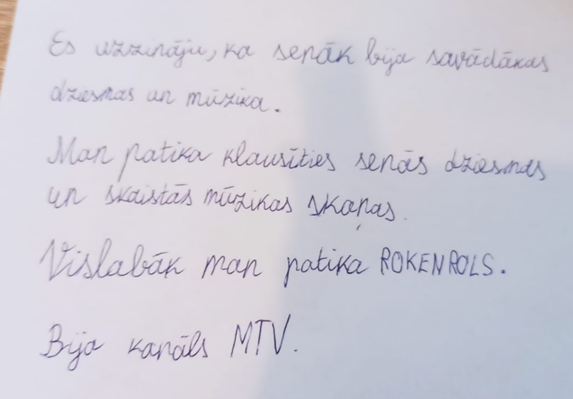 Es uzzināju, ka senāk bija savādākas
dziesmas un mūzika.
Man patika klausīties senās dziesmas
un skaistās mūzikas skaņas.
Vislabāk man patika ROKENROLS.
Bija kanāls MTV.